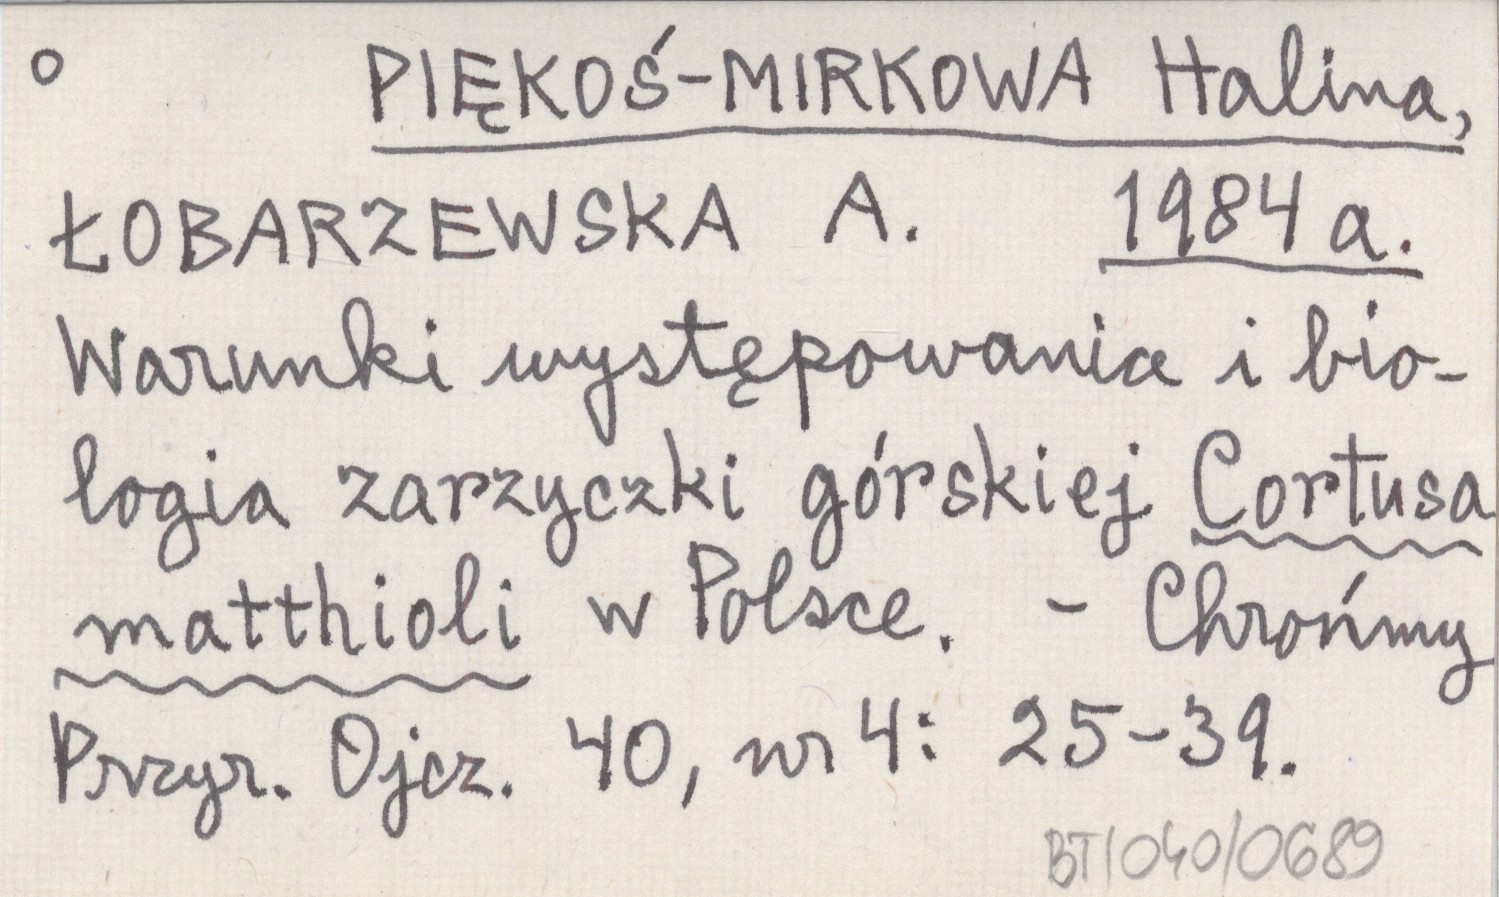 o PIĘKOŚ-MIRKOWA Halina,
ŁOBARZEWSKA A. 1984 a.
Warunki występowania i bio-
logia zarzyczki górskiej Cortusa
matthioli w Polsce. - Chrońmy
Przyr. Ojcz. 40, nr 4: 25-39.
BT/040/0689